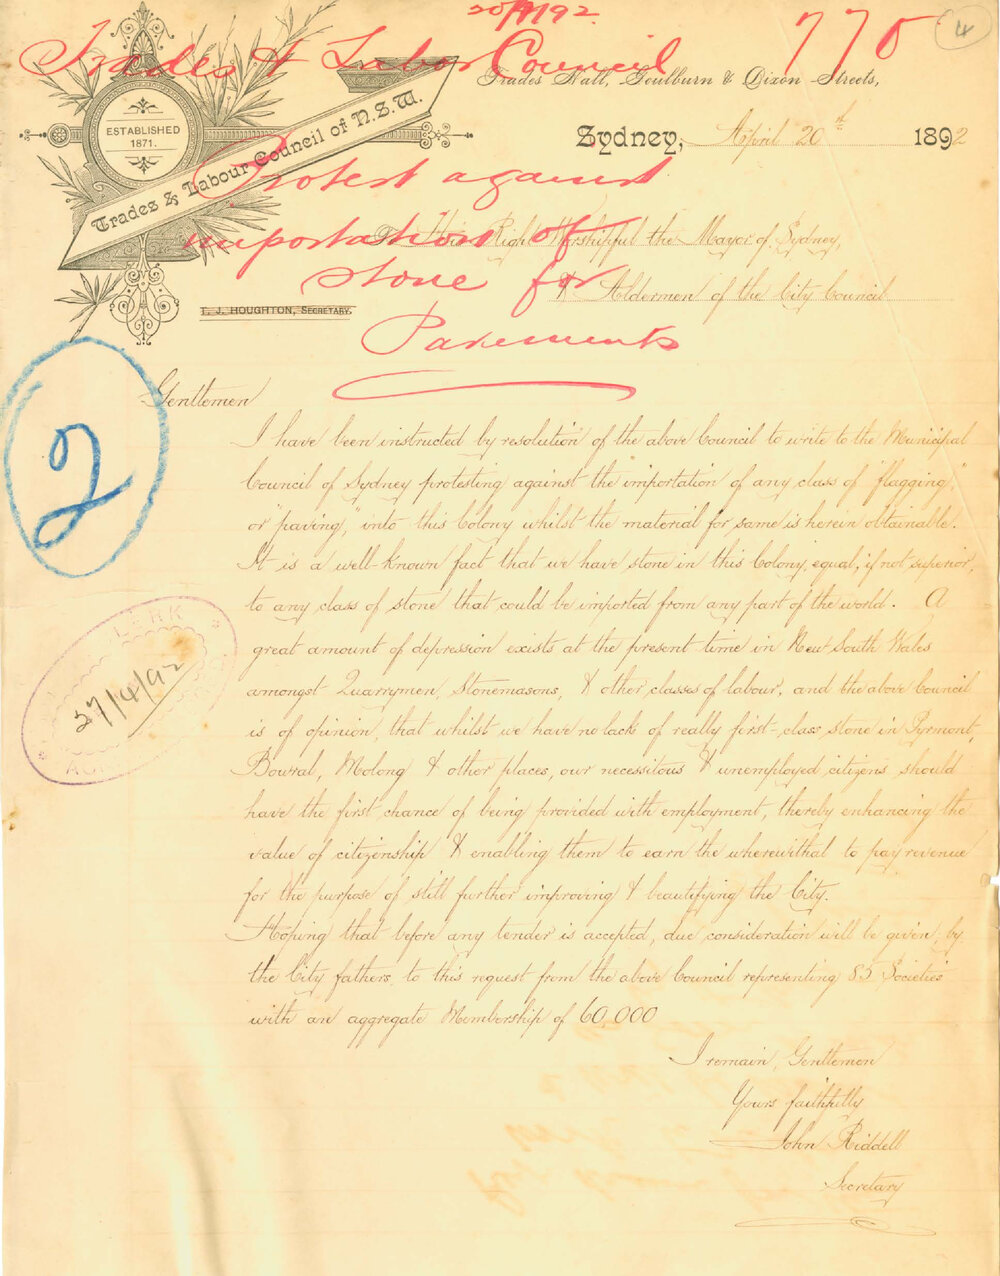 20/4/92.
770
4
Trades & Labor Council
Trades Hall, Goulburn & Dixon Streets,
ESTABLISHED
1871.
Trades & Labour Council of N.S.W.
Sydney, April 20th 1892
Protest against
importation of
stone for
Pavements
To His Right Worshipful the Mayor of Sydney,
& Aldermen of the City Council
T. J. HOUGHTON, SECRETARY.
2
Gentlemen
I have been instructed by resolution of the above Council to write to the Municipal
Council of Sydney protesting against the importation of any class of "flagging",
or "paving," into this Colony whilst the material for same is herein obtainable.
It is a well-known fact that we have stone in this Colony, equal, if not superior,
to any class of stone that could be imported from any part of the world. A
great amount of depression exists at the present time in New South Wales
amongst Quarrymen, Stonemasons, & other classes of labour, and the above Council
is of opinion, that whilst we have no lack of really first-class stone in Pyrmont,
Bowral, Molong & other places, our necessitous & unemployed citizens should
have the first chance of being provided with employment, thereby enhancing the
value of citizenship & enabling them to earn the wherewithal to pay revenue
for the purpose of still further improving & beautifying the City.
Hoping that before any tender is accepted, due consideration will be given, by
the City fathers, to this request from the above Council representing 85 Societies
with an aggregate Membership of 60,000
CLERK
27/4/92
I remain, Gentlemen
Yours faithfully
John Riddell
Secretary